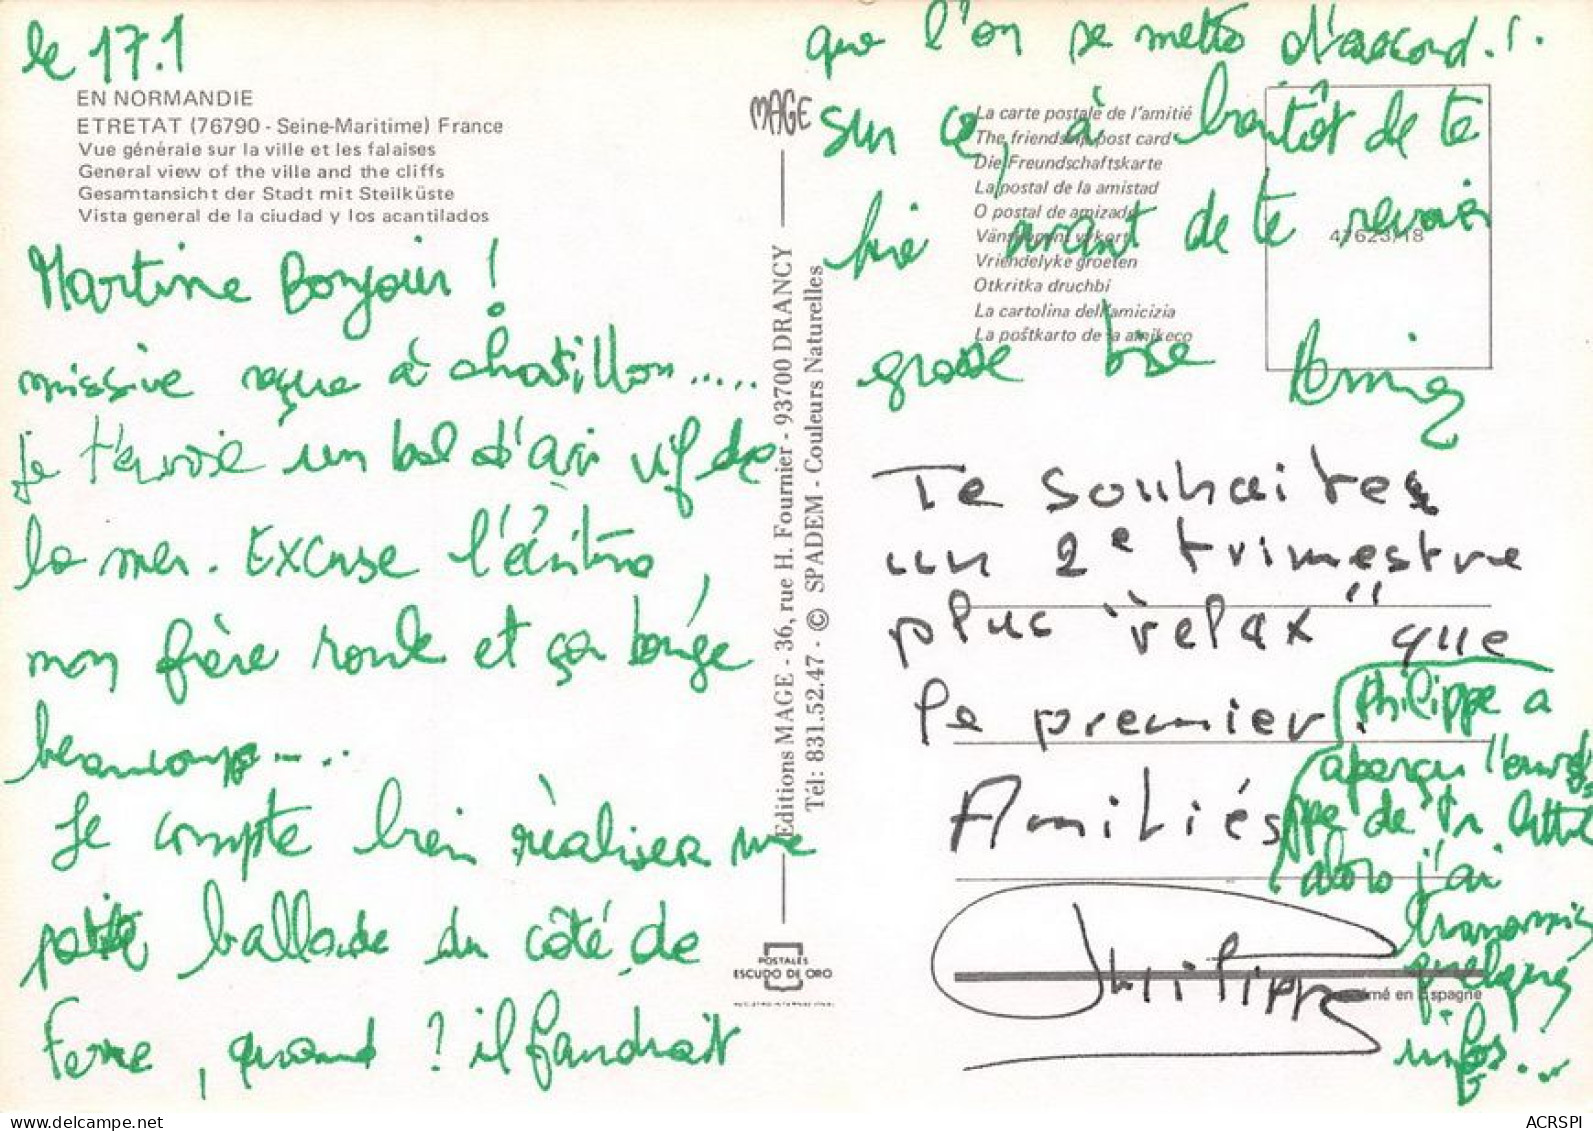 le 17.1
EN NORMANDIE
ETRETAT (76790 - Seine-Maritime) France
Vue générale sur la ville et les falaises
General view of the ville and the cliffs
Gesamtansicht der Stadt mit Steilküste
Vista general de la ciudad y los acantilados
Martine Bonjour !
missive reçue à chatillon.....
je t'envoie un bol d'air vif de
la mer. Excuse l'écriture,
mon frère roule et ça bouge
beaucoup....
Je compte bien réaliser une
petite ballade du côté de
, quand ? il faudrait
MAGE
Editions MAGE - 36, rue H. Fournier - 93700 DRANCY
Tél: 831.52.47 - © SPADEM - Couleurs Naturelles
POSTALES
ESCUDO DE ORO
que l'on se mette d'accord.!.
sur ce, à bientôt de te
lire avant de te revoir
grosse bise
La carte postale de l'amitié
The friendship post card
Die Freundschaftskarte
La postal de la amistad
O postal de amizade
Vänskapent vykort
Vriendelyke groeten
Otkritka druchbi
La cartolina dell'amicizia
La poŝtkarto de la amikeco
47623/18
Te souhaites
un 2e trimestre
plus "relax" que
le premier.
Amitiés
Philippe
Philippe a
aperçu l'envelo
ppe de ta lettre
alors j'ai
transmis
quelques
infos...
imprimé en Espagne
delcampe.net
ACRSPI